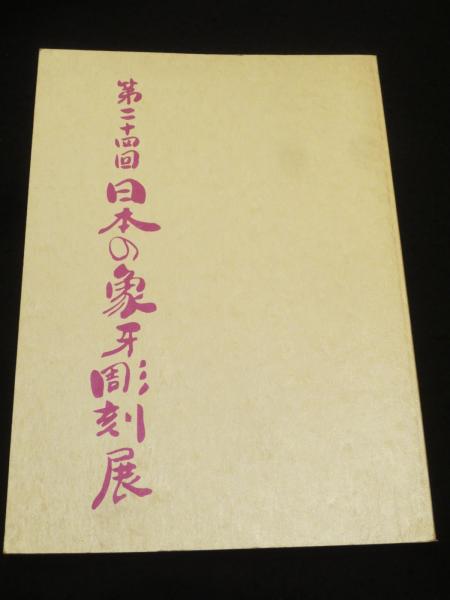 第二十四回日本の象牙彫刻展